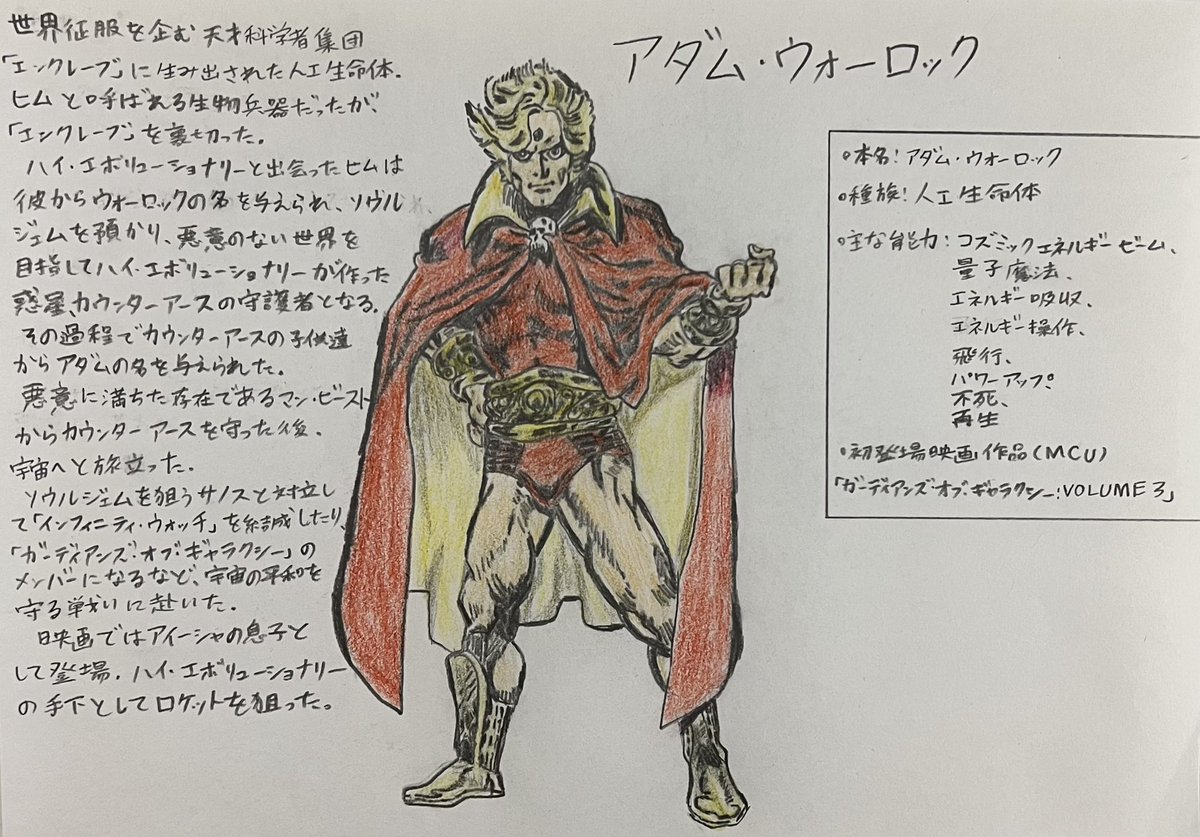 アダム・ウォーロック
世界征服を企む天才科学者集団
「エンクレーブ」に生み出された人工生命体.
ヒムと呼ばれる生物兵器だったが、
「エンクレーブ」を裏切った.
ハイ・エボリューショナリーと出会ったヒムは
彼からウォーロックの名を与えられ、ソウル
ジェムを預かり、悪意のない世界を
目指してハイ・エボリューショナリーが作った
惑星、カウンターアースの守護者となる.
その過程でカウンターアースの子供達
からアダムの名を与えられた.
悪意に満ちた存在であるマン・ビースト
からカウンターアースを守った後、
宇宙へと旅立った.
ソウルジェムを狙うサノスと対立し
て「インフィニティ・ウォッチ」を結成したり、
「ガーディアンズ・オブ・ギャラクシー」の
メンバーになるなど、宇宙の平和を
守る戦いに赴いた.
映画ではアイーシャの息子と
して登場.ハイ・エボリューショナリー
の手下としてロケットを狙った。
・本名:アダム・ウォーロック
・種族:人工生命体
・主な能力:コズミックエネルギービーム、
量子魔法、
エネルギー吸収、
エネルギー操作、
飛行、
パワーアップ、
不死、
再生
・初登場映画作品(MCU)
「ガーディアンズ・オブ・ギャラクシー:VOLUME 3」